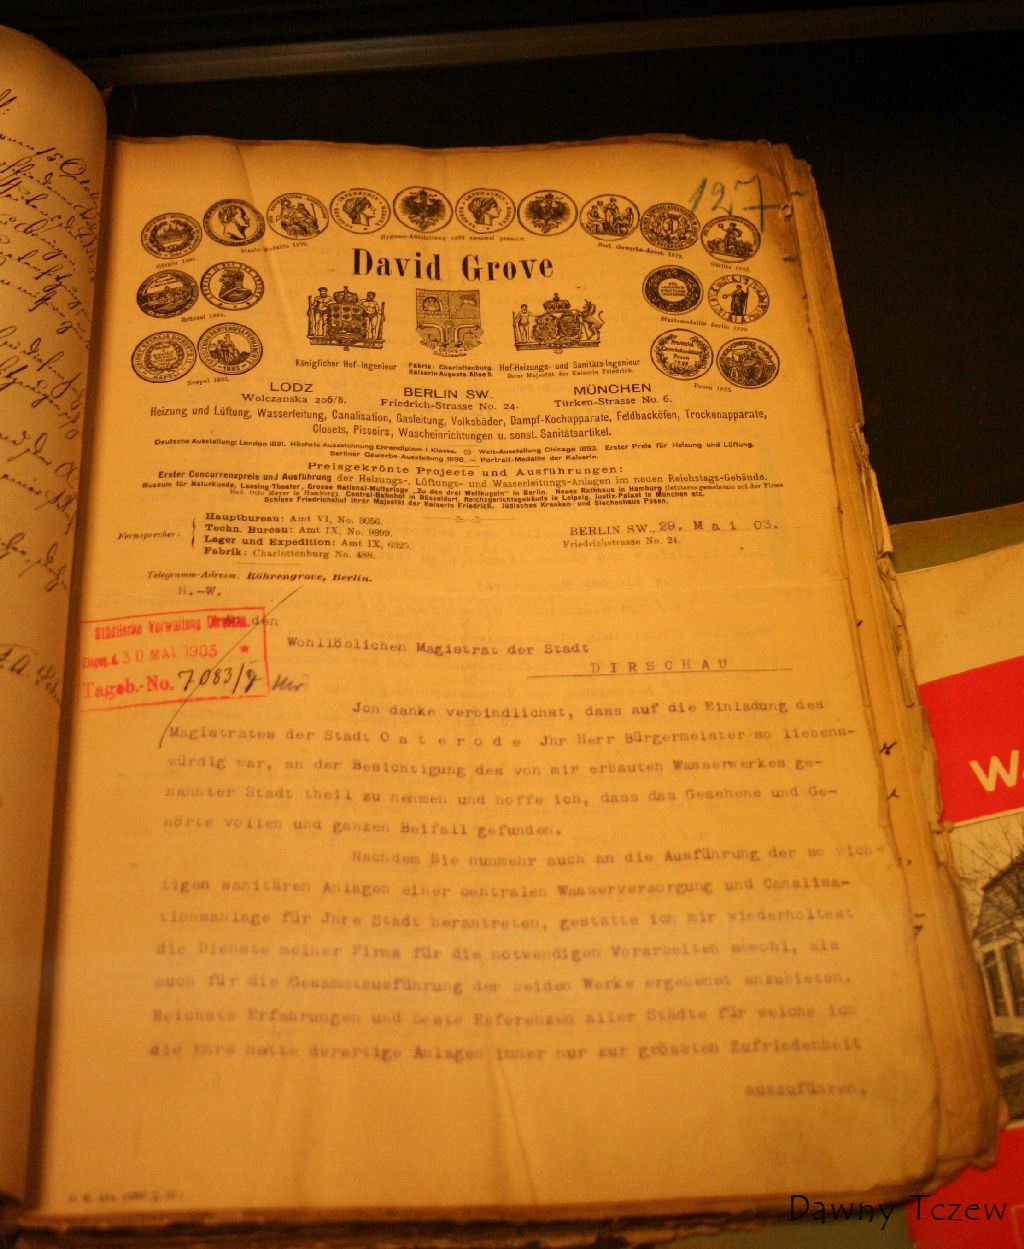 127
Görlitz 1885.
Staats-Medaille 1879.
Hygiene-Ausstellung 1883 zweimal prämiirt.
Berl. Gewerbe-Ausst. 1879.
David Grove
Brüssel 1888.
Staatsmedaille Berlin
Neapel
Posen 1895.
Königlicher Hof-Ingenieur
Fabrik: Charlottenburg.
Kaiserin Augusta-Allee
Hof-Heizungs- und Sanitäts-Ingenieur
Ihrer Majestät der Kaiserin Friedrich.
LODZ
Wolczanska 206/8.
BERLIN SW.
Friedrich-Strasse No. 24.
MÜNCHEN
Türken-Strasse No. 6.
Heizung und Lüftung, Wasserleitung, Canalisation, Gasleitung, Volksbäder, Dampf-Kochapparate, Feldbacköfen, Trockenapparate,
Closets, Pissoirs, Wascheinrichtungen u. sonst. Sanitätsartikel.
Deutsche Ausstellung: London 1891. Höchste Auszeichnung Ehrendiplom I. Klasse. Welt-Ausstellung Chicago 1893. Erster Preis für Heizung und Lüftung.
Berliner Gewerbe-Ausstellung 1896. — Portrait-Medaille der Kaiserin.
Preisgekrönte Projecte und Ausführungen:
Erster Concurrenzpreis und Ausführung der Heizungs-, Lüftungs- und Wasserleitungs-Anlagen im neuen Reichstags-Gebäude.
Museum für Naturkunde, Lessing-Theater, Grosse National-Mutterloge „Zu den drei Weltkugeln" in Berlin. Neues Rathhaus in Hamburg (letzteres gemeinsam mit der Firma
Rud. Otto Meyer in Hamburg). Central-Bahnhof in Düsseldorf, Reichsgerichtsgebäude in Leipzig, Justiz-Palast in München etc.
Schloss Friedrichshof Ihrer Majestät der Kaiserin Friedrich. Jüdisches Kranken- und Siechenhaus Posen.
Fernsprecher:
Hauptbureau: Amt VI, No. 3056.
Techn. Bureau: Amt IX, No. 9899.
Lager und Expedition: Amt IX, 6325.
Fabrik: Charlottenburg No. 488.
BERLIN SW., 29. Mai 03.
Friedrichstrasse No. 24.
Telegramm-Adresse: Röhrengrove, Berlin.
H.-W.
den
Städtische Verwaltung Dirschau.
30 MAI 1903
Tageb.-No. 7083/
Wohllöblichen Magistrat der Stadt
DIRSCHAU
Jch danke verbindlichst, dass auf die Einladung des
Magistrates der Stadt Osterode Jhr Herr Bürgermeister so liebens-
würdig war, an der Besichtigung des von mir erbauten Wasserwerkes ge-
nannter Stadt theil zu nehmen und hoffe ich, dass das Gesehene und Ge-
hörte vollen und ganzen Beifall gefunden.
Nachdem Sie nunmehr auch an die Ausführung der so wich-
tigen sanitären Anlagen einer centralen Wasserversorgung und Canalisa-
tionsanlage für Jhre Stadt herantreten, gestatte ich mir wiederholtest
die Dienste meiner Firma für die notwendigen Vorarbeiten sowohl, als
auch für die Gesammtausführung der beiden Werke ergebenst anzubieten.
Reichste Erfahrungen und beste Referenzen aller Städte für welche ich
die Ehre hatte derartige Anlagen immer nur zur grössten Zufriedenheit
auszuführen,
W
Dawny Tczew